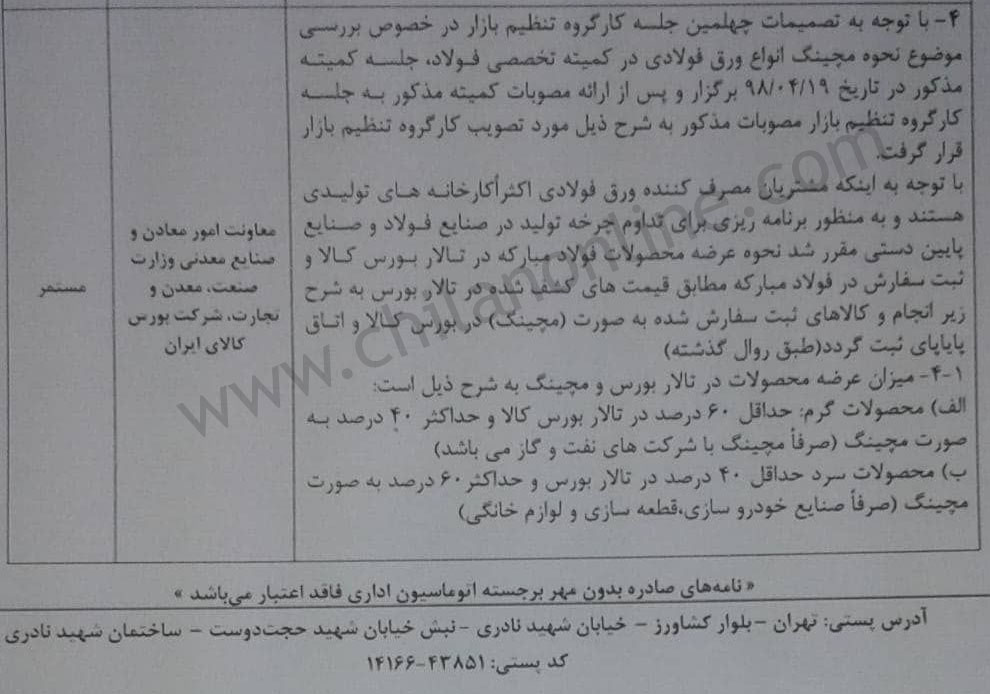 ۴- با توجه به تصمیمات چهلمین جلسه کارگروه تنظیم بازار در خصوص بررسی
موضوع نحوه مچینگ انواع ورق فولادی در کمیته تخصصی فولاد، جلسه کمیته
مذکور در تاریخ ۹۸/۰۴/۱۹ برگزار و پس از ارائه مصوبات کمیته مذکور به جلسه
کارگروه تنظیم بازار مصوبات مذکور به شرح ذیل مورد تصویب کارگروه تنظیم بازار
قرار گرفت.
با توجه به اینکه مشتریان مصرف کننده ورق فولادی اکثرأکارخانه های تولیدی
هستند و به منظور برنامه ریزی برای تداوم چرخه تولید در صنایع فولاد و صنایع
پایین دستی مقرر شد نحوه عرضه محصولات فولاد مبارکه در تالار بورس کالا و
ثبت سفارش در فولاد مبارکه مطابق قیمت های کشف شده در تالار بورس به شرح
زیر انجام و کالاهای ثبت سفارش شده به صورت (مچینگ) در بورس کالا و اتاق
پایاپای ثبت گردد(طبق روال گذشته)
۴-۱- میزان عرضه محصولات در تالار بورس و مچینگ به شرح ذیل است:
الف) محصولات گرم: حداقل ۶۰ درصد در تالار بورس کالا و حداکثر ۴۰ درصد به
صورت مچینگ (صرفأ مچینگ با شرکت های نفت و گاز می باشد)
ب) محصولات سرد حداقل ۴۰ درصد در تالار بورس و حداکثر۶۰ درصد به صورت
مچینگ (صرفأ صنایع خودرو سازی،قطعه سازی و لوازم خانگی)
معاونت امور معادن و
صنایع معدنی وزارت
صنعت، معدن و
تجارت، شرکت بورس
کالای ایران
مستمر
« نامه‌های صادره بدون مهر برجسته اتوماسیون اداری فاقد اعتبار می‌باشد »
آدرس پستی: تهران –بلوار کشاورز – خیابان شهید نادری –نبش خیابان شهید حجت‌دوست – ساختمان شهید نادری
کد پستی: ۴۳۸۵۱-۱۴۱۶۶
www.chilanonline.com